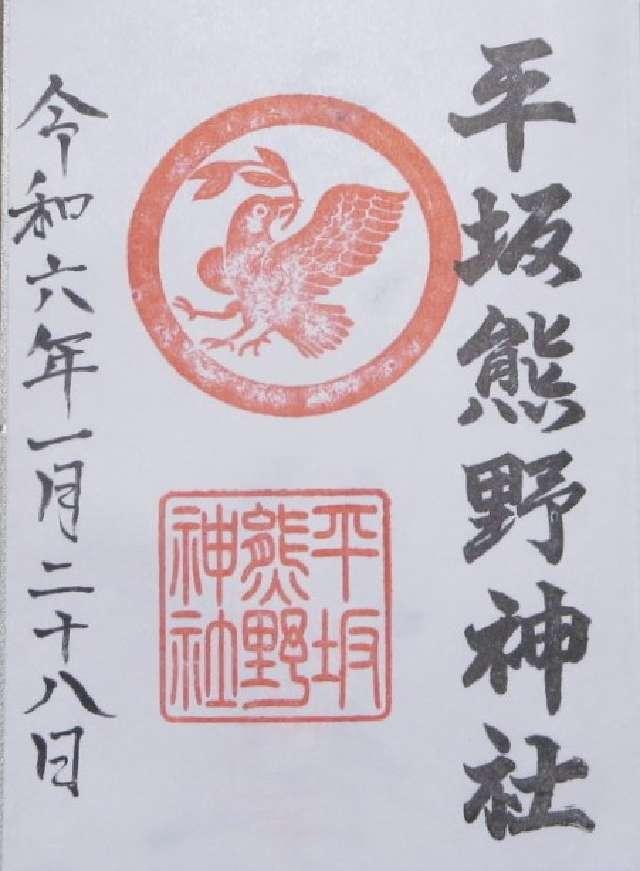 平坂熊野神社
平坂
熊野
神社
令和六年一月二十八日